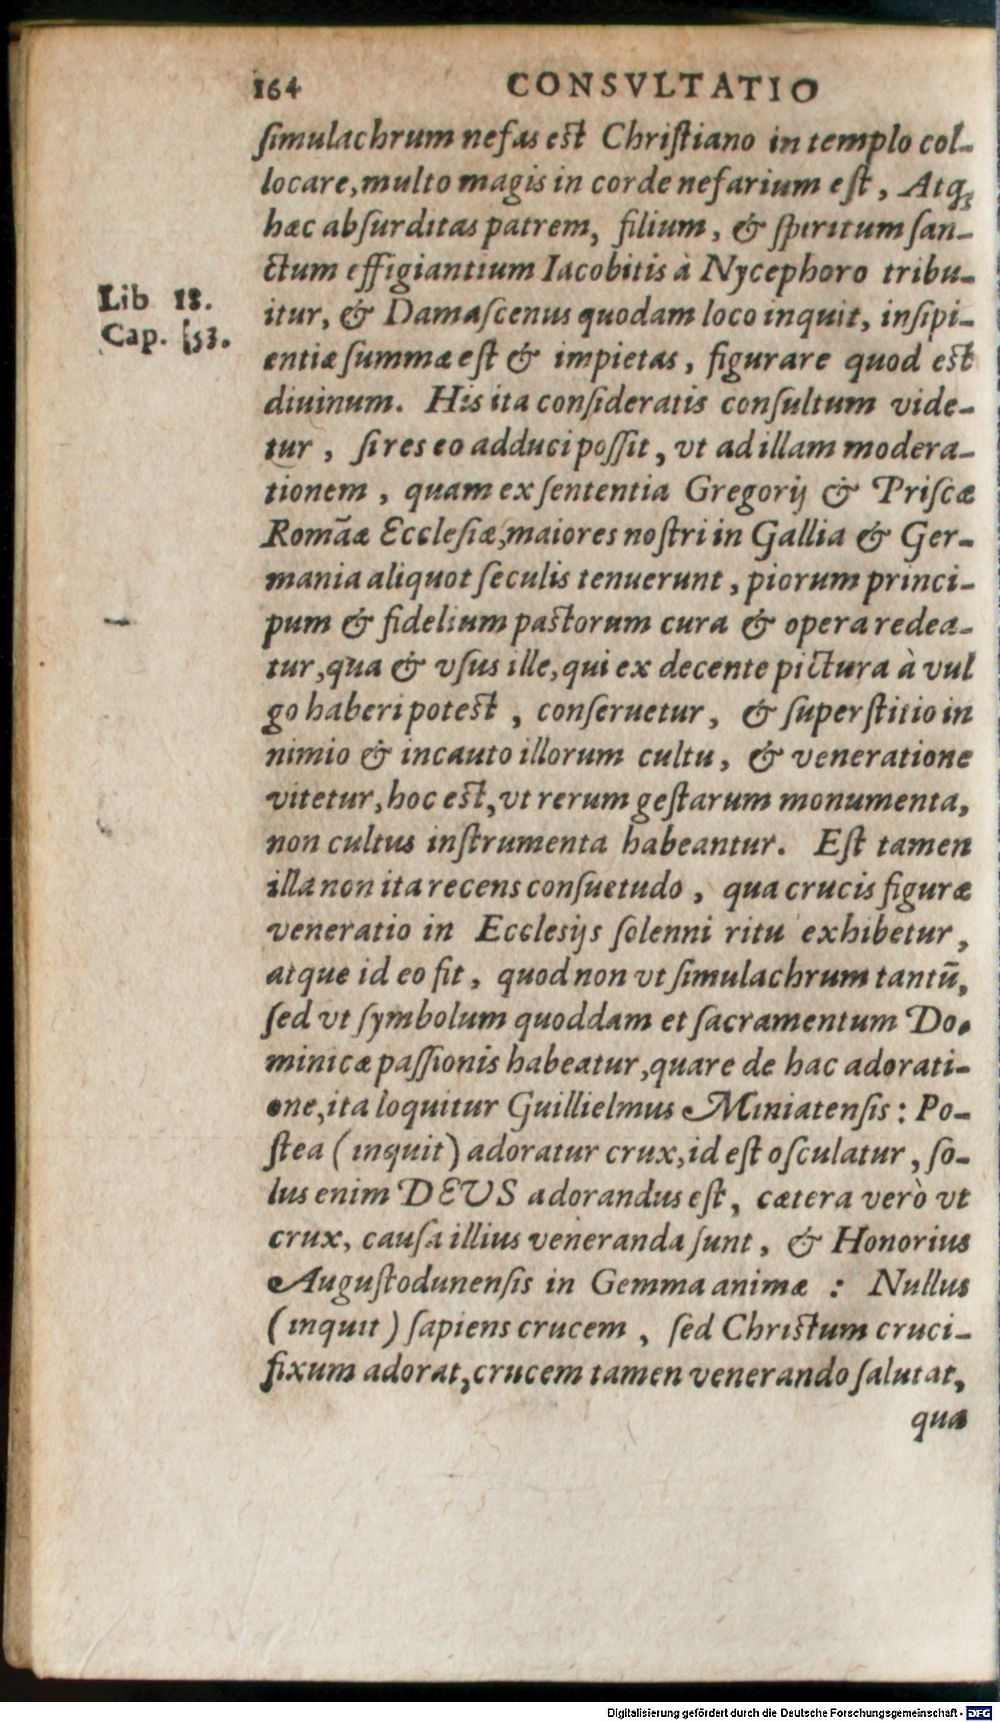 164 CONSVLTATIO
simulachrum nefas est Christiano in templo col-
locare, multo magis in corde nefarium est, Atq;
hæc absurditas patrem, filium, & spiritum san-
ctum effigiantium Iacobitis à Nycephoro tribu-
Lib 18.
Cap. 53.
itur, & Damascenus quodam loco inquit, insipi-
entiæ summæ est & impietas, figurare quod est
diuinum. His ita consideratis consultum vide-
tur, si res eo adduci possit, vt ad illam modera-
tionem, quam ex sententia Gregorij & Priscæ
Romãæ Ecclesiæ, maiores nostri in Gallia & Ger-
mania aliquot seculis tenuerunt, piorum princi-
pum & fidelium pastorum cura & opera redea-
tur, qua & vsus ille, qui ex decente pictura à vul
go haberi potest, conseruetur, & superstitio in
nimio & incauto illorum cultu, & veneratione
vitetur, hoc est, vt rerum gestarum monumenta,
non cultus instrumenta habeantur. Est tamen
illa non ita recens consuetudo, qua crucis figuræ
veneratio in Ecclesijs solenni ritu exhibetur,
atque id eo fit, quod non vt simulachrum tantũ,
sed vt symbolum quoddam et sacramentum Do-
minicæ passionis habeatur, quare de hac adorati-
one, ita loquitur Guillielmus Miniatensis: Po-
stea (inquit) adoratur crux, id est osculatur, so-
lus enim DEUS adorandus est, cætera verò vt
crux, causa illius veneranda sunt, & Honorius
Augustodunensis in Gemma animæ : Nullus
(inquit) sapiens crucem, sed Christum cruci-
fixum adorat, crucem tamen venerando salutat,
qua
Digitalisierung gefördert durch die Deutsche Forschungsgemeinschaft - DFG